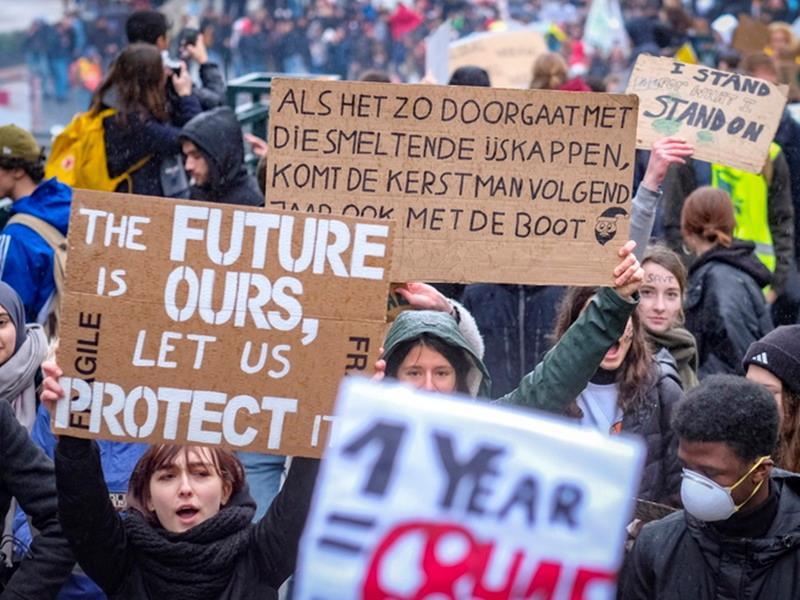 THE FUTURE
IS OURS,
LET US
PROTECT
FRAGILE
FR
ALS HET ZO DOORGAAT MET
DIE SMELTENDE IJSKAPPEN,
KOMT DE KERSTMAN VOLGEND
JAAR OOK MET DE BOOT
I STAND
WHAT I
STAND ON
SAVE
1 YEAR
=